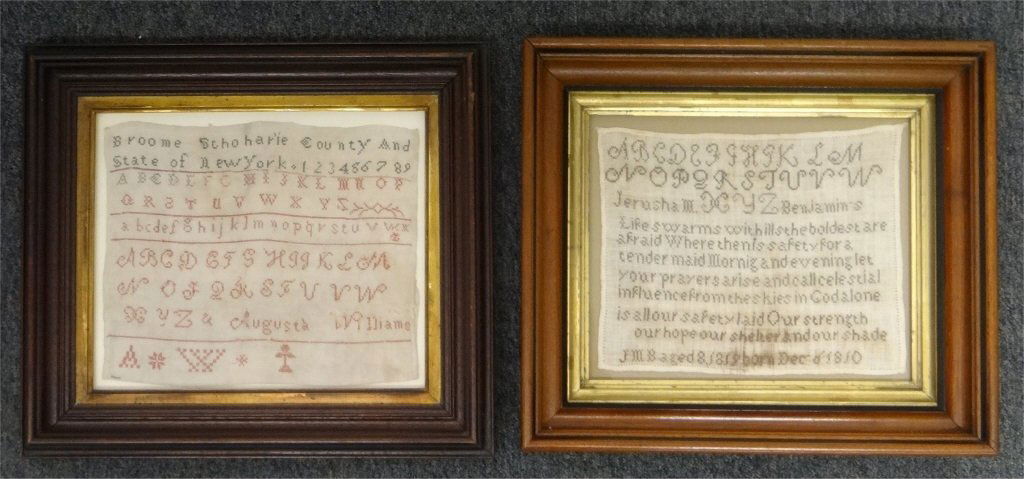 Broome Schoharie County And
State of NewYork. 1 2 3 4 8 6 7 8 9
A B C D E F G H I J K L M N O P
Q R S T U V W X Y Z
a b c d e f g h i j k l m n o p q r s t u v w x
z
A B C D E F G H I J K L M
N O P Q R S T U V W
X Y Z & Augusta Williams
A W
A B C D E F G H I J K L M
N O P Q R S T U V W
Jerusha M. X Y Z Benjamin's
Life swarms with ills the boldest are
afraid Where then Is safety for a
tender maid Mornig and evening let
your prayers arise and call celestial
influence from the skies in God alone
is all our safety laid Our strength
our hope our shelter and our shade
J M B aged 8, 1819 born Dec 1810